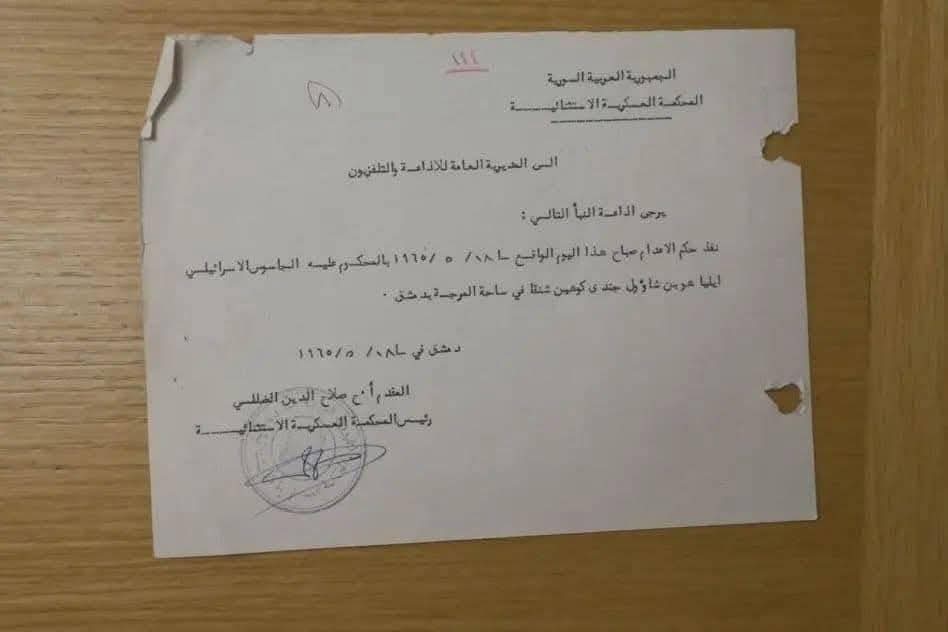 ١٤٤
الجمهورية العربية السورية
المحكمة العسكرية الاستثنائية
الى المديرية العامة للاذاعة والتلفزيون
يرجى اذاعة النبأ التالي :
نفذ حكم الاعدام صباح هذا اليوم الواقع في ١٨/ ٥ /١٩٦٥ بالمحكوم عليه الجاسوس الاسرائيلي
ايليا هو بن شاؤول جندى كوهين شنقا في ساحة المرجة بدمشق .
دمشق في ١٨/ ٥ /١٩٦٥
المقدم أ.ح صلاح الدين الضللي
رئيس المحكمة العسكرية الاستثنائية